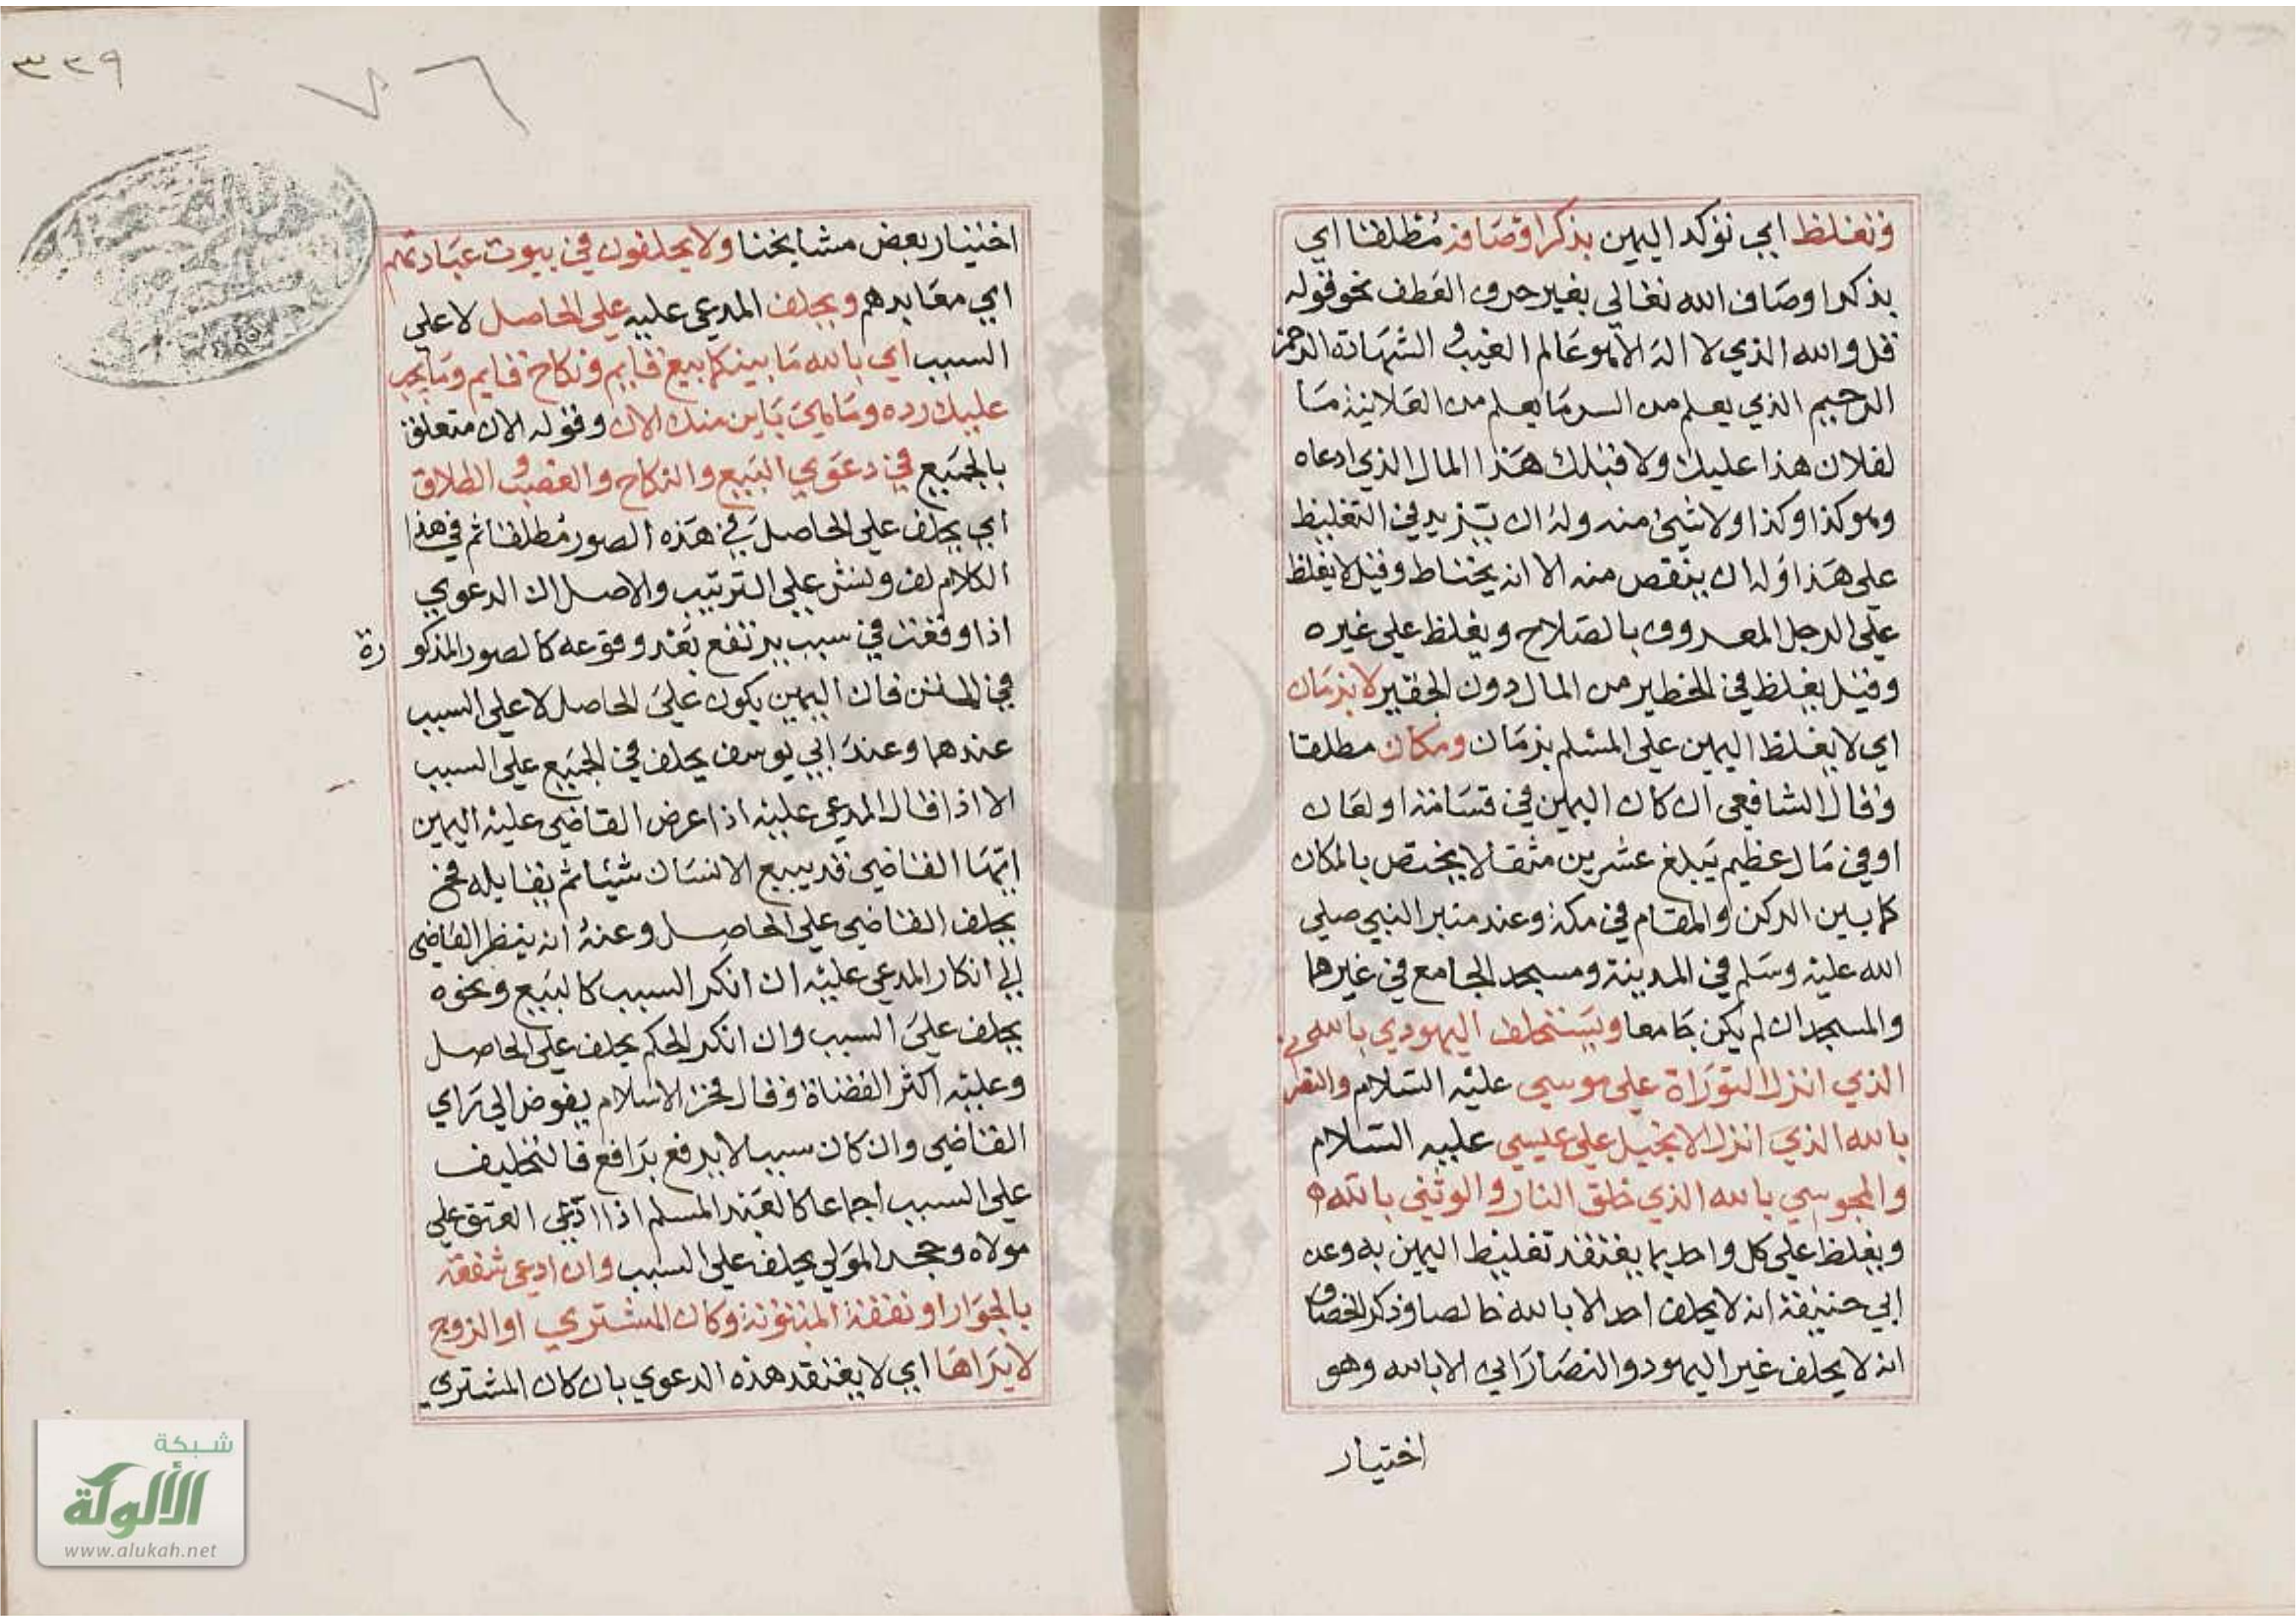 وتغلظ اي تؤكد اليمين بذكر اوصافه مطلقا اي
بذكر اوصاف الله تعالى بغير حرف العطف نحو قوله
قل والله الذي لا اله الا هو عالم الغيب و الشهادة الرحمن
الرحيم الذي يعلم من السر ما يعلم من العلانية ما
لفلان هذا عليك ولا قبلك هذا المال الذي ادعاه
وهو كذا وكذا ولا شيئ منه وله ان يزيد في التغليظ
على هذا وله ان ينقص منه الا انه يحتاط وقيل لا يغلظ
على الرجل المعروف بالصلاح ويغلظ على غيره
وقيل يغلظ في الخطير من المال دون الحقير لا بزمان
اي لا يغلظ اليمين على المسلم بزمان ومكان مطلقا
وقال الشافعي ان كان اليمين في قسامة او لعان
او في مال عظيم يبلغ عشرين مثقالا يختص بالمكان
كما بين الركن والمقام في مكة وعند منبر النبي صلى
الله عليه وسلم في المدينة ومسجد الجامع في غيرهما
والمسجد ان لم يكن جامعا ويستحلف اليهودي بالله
الذي انزل التوراة على موسى عليه السلام والنصراني
بالله الذي انزل الانجيل على عيسى عليه السلام
والمجوسي بالله الذي خلق النار والوثني بالله
ويغلظ على كل واحد بما يعتقد تغليظ اليمين به وعن
ابي حنيفة انه لا يحلف احد الا بالله خالصا وذكر الخصاف
انه لا يحلف غير اليهود والنصارى الا بالله وهو
اختيار
٣٣٩
٧٦
اختيار بعض مشايخنا ولا يحلفون في بيوت عباداتهم
اي معابدهم ويحلف المدعى عليه على الحاصل لا على
السبب اي بالله ما بينكما بيع قايم ونكاح قايم وما يجب
عليك رده وما هي باين منك الان وقوله الان متعلق
بالجميع في دعوى البيع والنكاح والغصب و الطلاق
اي يحلف على الحاصل في هذه الصور مطلقا ثم في هذا
الكلام لف ونشر على الترتيب والاصل ان الدعوى
اذا وقعت في سبب يرتفع بعد وقوعه كالصور المذكورة
في المتن فان اليمين يكون على الحاصل لا على السبب
عندهما وعند ابي يوسف يحلف في الجميع على السبب
الا اذا قال المدعى عليه اذا عرض القاضي عليه اليمين
ايها القاضي قد يبيع الانسان شيئا ثم يقايله فح
يحلف القاضي على الحاصل وعنه انه ينظر القاضي
الى انكار المدعى عليه ان انكر السبب كالبيع ونحوه
يحلف على السبب وان انكر الحكم يحلف على الحاصل
وعليه اكثر القضاة وقال فخر الاسلام يفوض الى راي
القاضي وان كان سببا لا يرفع برافع فالتحليف
على السبب اجماعا كالعبد المسلم اذا ادعى العتق على
مولاه وجحد المولى يحلف على السبب وان ادعى شفعة
بالجوار او نفقة المبتوتة وكان المشتري او الزوج
لا يراها اي لا يعتقد هذه الدعوى بان كان المشتري
شبكة
الألوكة
www.alukah.net